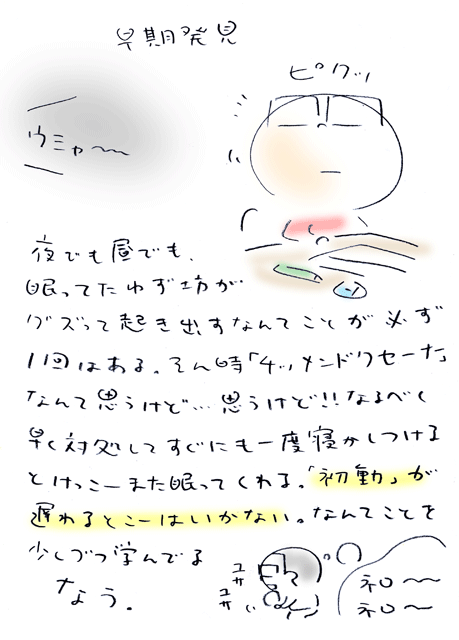 早期発見
ピクッ
ウミャ〜〜
夜でも昼でも、
眠ってたわず坊が
グズって起き出すなんてことが必ず
1回はある。そん時「チッ、メンドクセーな」
なんて思うけど…思うけど!!なるべく
早く対処してすぐにも一度寝かしつける
とけっこーまた眠ってくれる。「初動」が
遅れるとこーはいかない。なんてことを
少しづつ学んでる
なう。
ユサ
ユサ
ネロ〜〜
ネロ〜〜